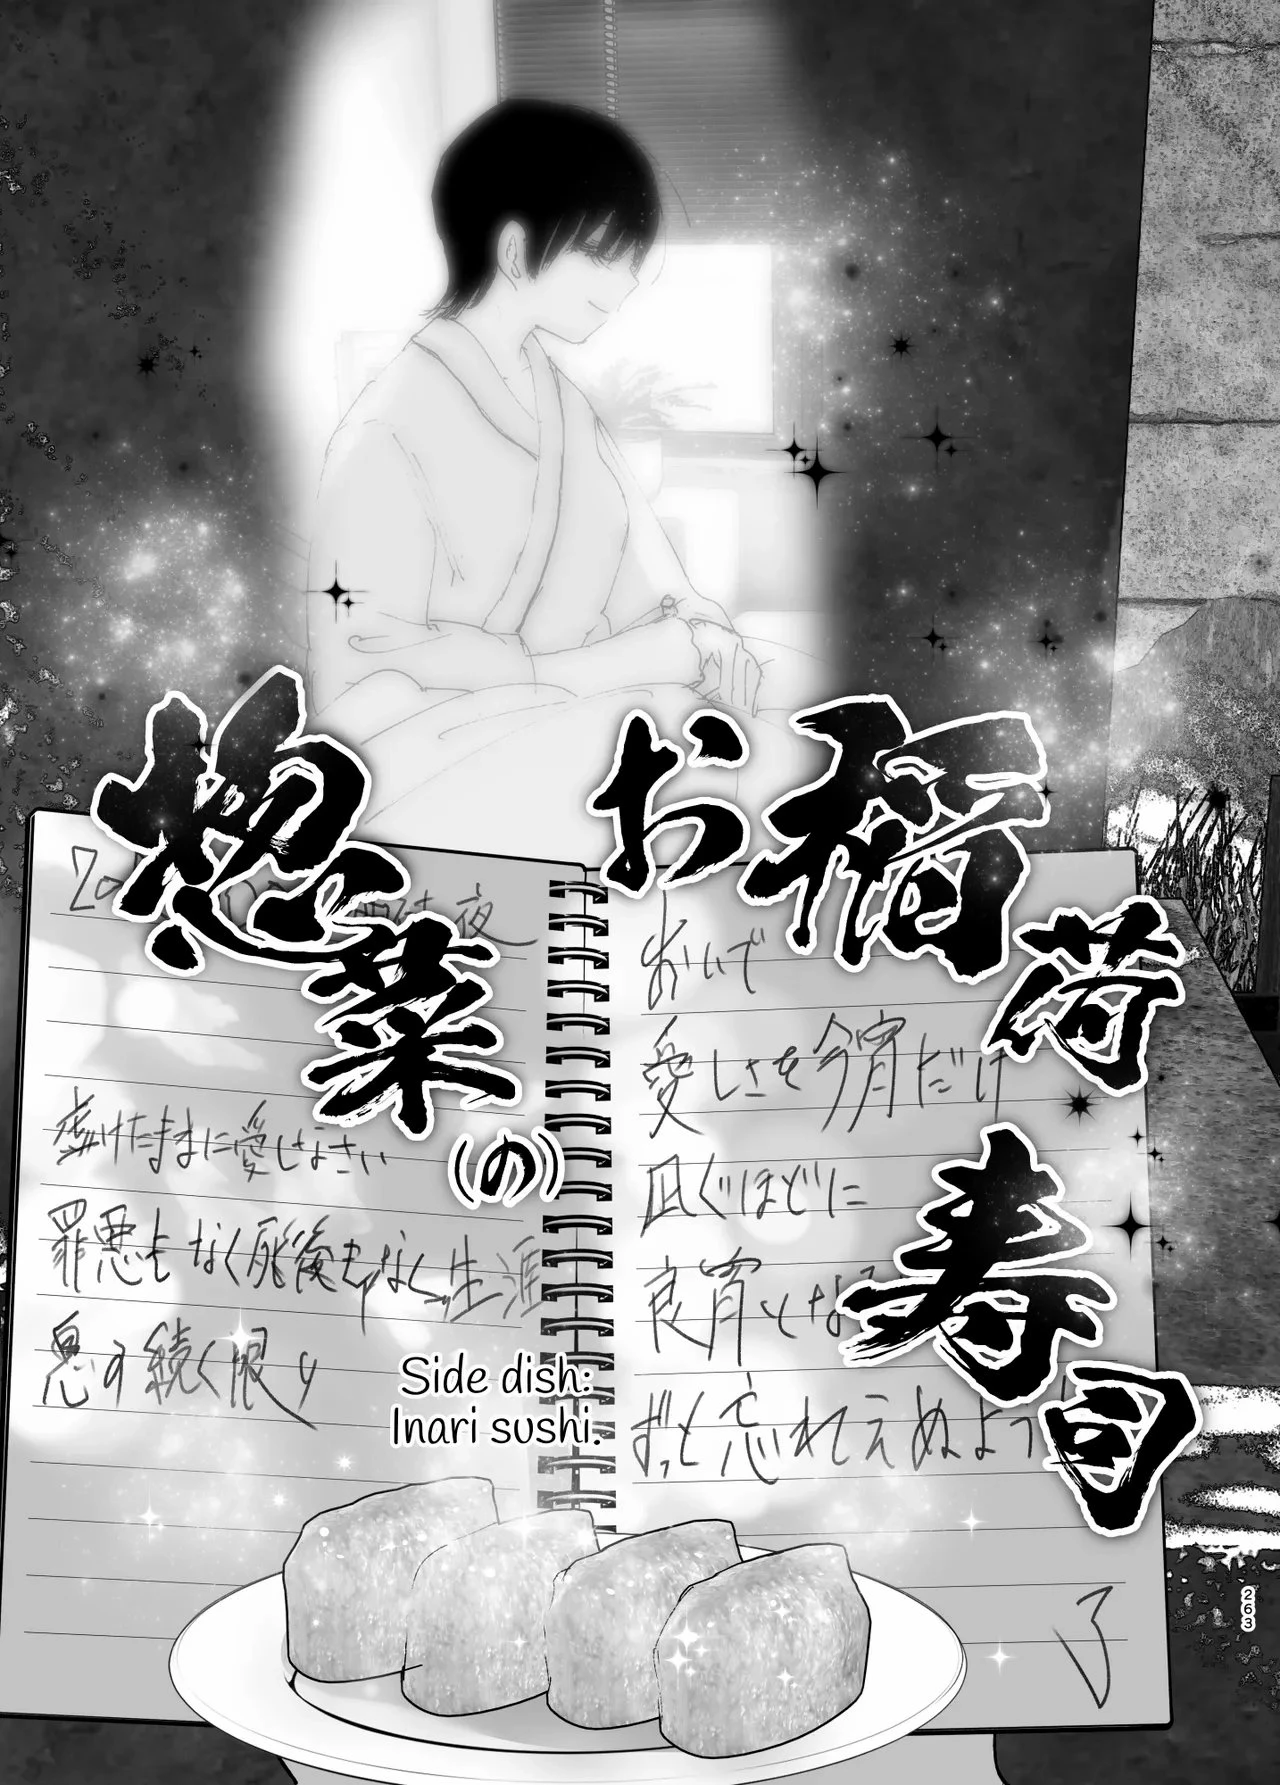 お稲荷寿司
惣菜(の)
夜
虚けたままに愛しなさい
罪悪もなく死後もなく生涯
息す続く限り
おいで
愛しさを今宵だけ
凪ぐほどに
良宵とな
ずっと忘れえぬよう
了
Side dish:
Inari sushi.
263